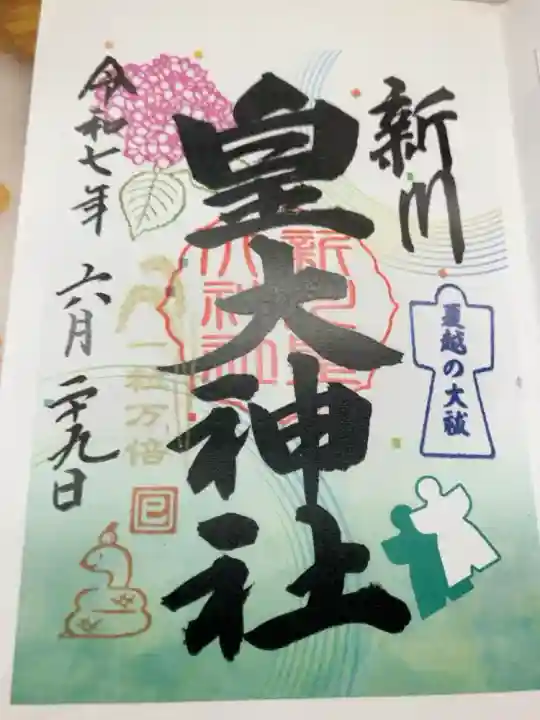 新川
皇大神社
夏越の大祓
令和七年
六月二十九日
一粒万倍
巳